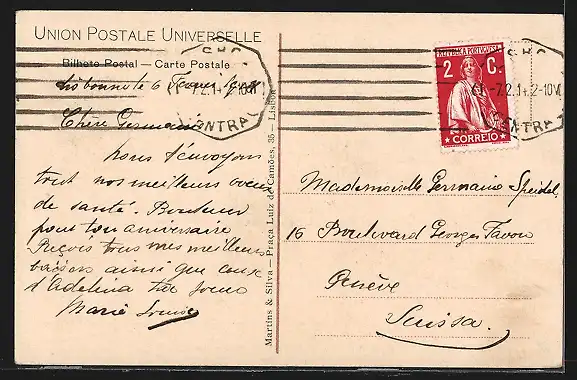 UNION POSTALE UNIVERSELLE
Bilhete Postal — Carte Postale
Lisbonne le 6
Chère Germaine
nous t'envoyons
tout nos meilleurs voeux
de santé. Bonheur
pour ton aniversaire
Reçois tous mes meilleurs
baisers ainsi que ceux
d'Adelina
Marie Louise
Martins & Silva — Praça Luiz de Camões, 35 — Lisboa
REPUBLICA PORTUGUESA
2 C.
CORREIO
-7.2.1
2-10M
CENTRAL
Mademoiselle Germaine Speidel
16 Boulevard Georges Favon
Genève
Suissa.